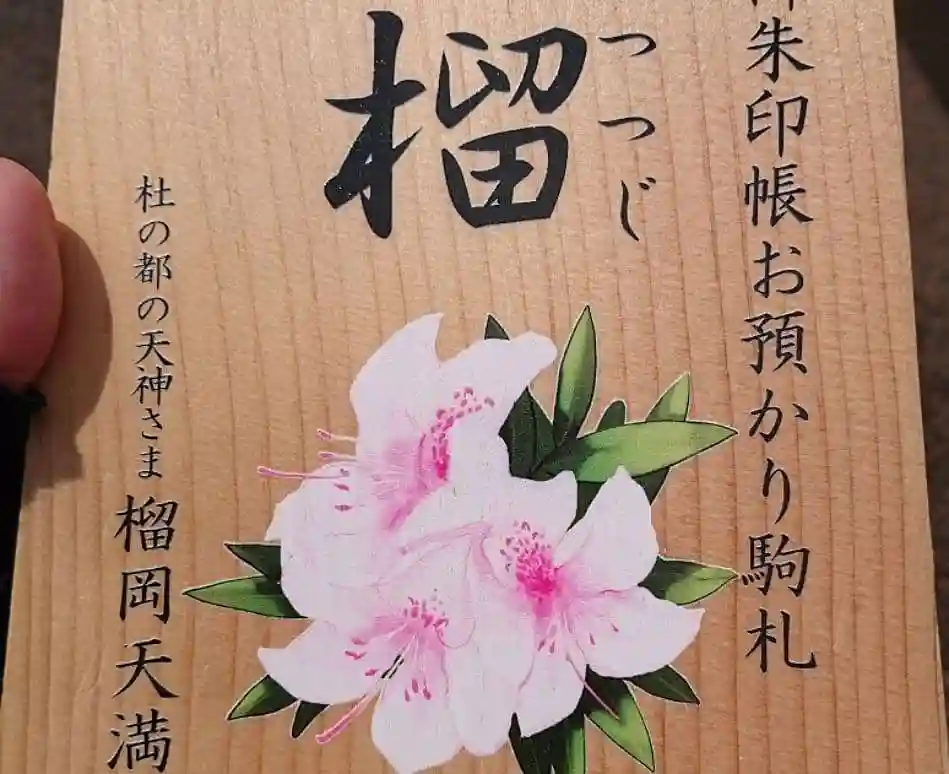 朱印帳お預かり駒札
つつじ
榴
杜の都の天神さま 榴岡天満